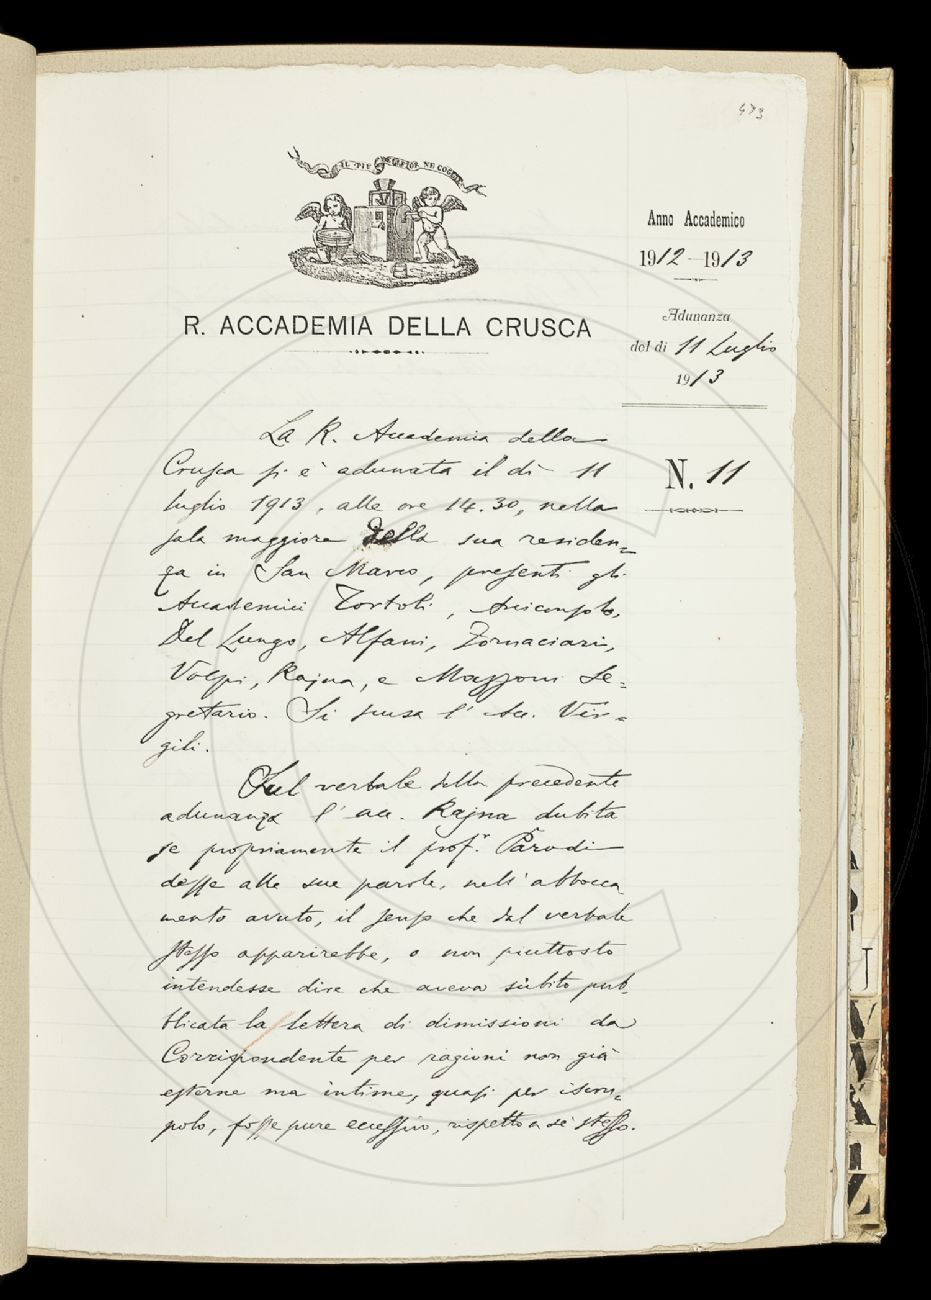 473
IL PIÙ BEL FIOR NE COGLIE
R. ACCADEMIA DELLA CRUSCA
Anno Accademico
1912-1913
Adunanza
del dì 11 Luglio
1913
N. 11
La R. Accademia della
Crusca si è adunata il dì 11
luglio 1913, alle ore 14.30, nella
sala maggiore della sua residen=
za in San Marco, presenti gli
Accademici Tortoli,
Del Lungo, Alfani, Fornaciari,
Volpi, Rajna, e Mazzoni Se=
gretario. Si scusa l' Acc. Vir=
gili.
Sul verbale della precedente
adunanza l' acc. Rajna dubita
se propriamente il prof.r Parodi
desse alle sue parole, nell' abbocca
mento avuto, il senso che dal verbale
stesso apparirebbe, o non piuttosto
intendesse dire che aveva subito pub.
blicata la lettera di dimissioni da
Corrispondente per ragioni non già
esterne ma intime, quasi per iscru=
polo, fosse pure eccessivo, rispetto a sè stesso.